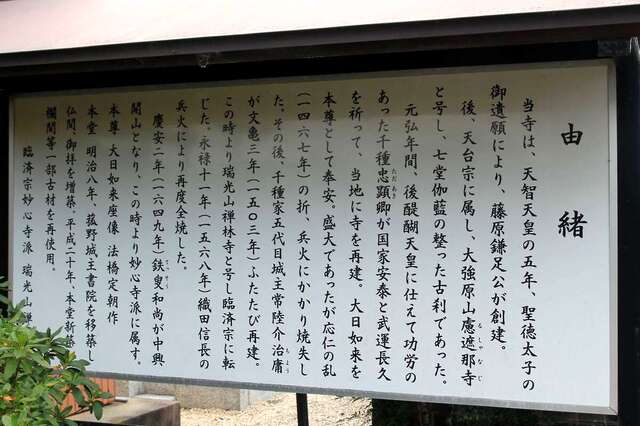 由緒
当寺は、天智天皇の五年、聖徳太子の
御遺願により、藤原鎌足公が創建。
後、天台宗に属し、大強原山廬遮那寺
と号し、七堂伽藍の整った古刹であった。
元弘年間、後醍醐天皇に仕えて功労の
あった千種忠顕卿が国家安泰と武運長久
を祈って、当地に寺を再建。大日如来を
本尊として奉安。盛大であったが応仁の乱
(一四六七年)の折、兵火にかかり焼失し
た。その後、千種家五代目城主常陸介治庸
が文亀三年(一五〇三年)ふたたび再建。
この時より瑞光山禅林寺と号し臨済宗に転
じた。永禄十一年(一五六八年)織田信長の
兵火により再度全焼した。
慶安二年(一六四九年)鉄叟和尚が中興
開山となり、この時より妙心寺派に属す。
本尊 大日如来座像 法橋定朝作
本堂 明治八年、菰野城主書院を移築し
仏間、御拝を増築。平成二十年、本堂新築
欄間等一部古材を再使用。
臨済宗妙心寺派 瑞光山禅